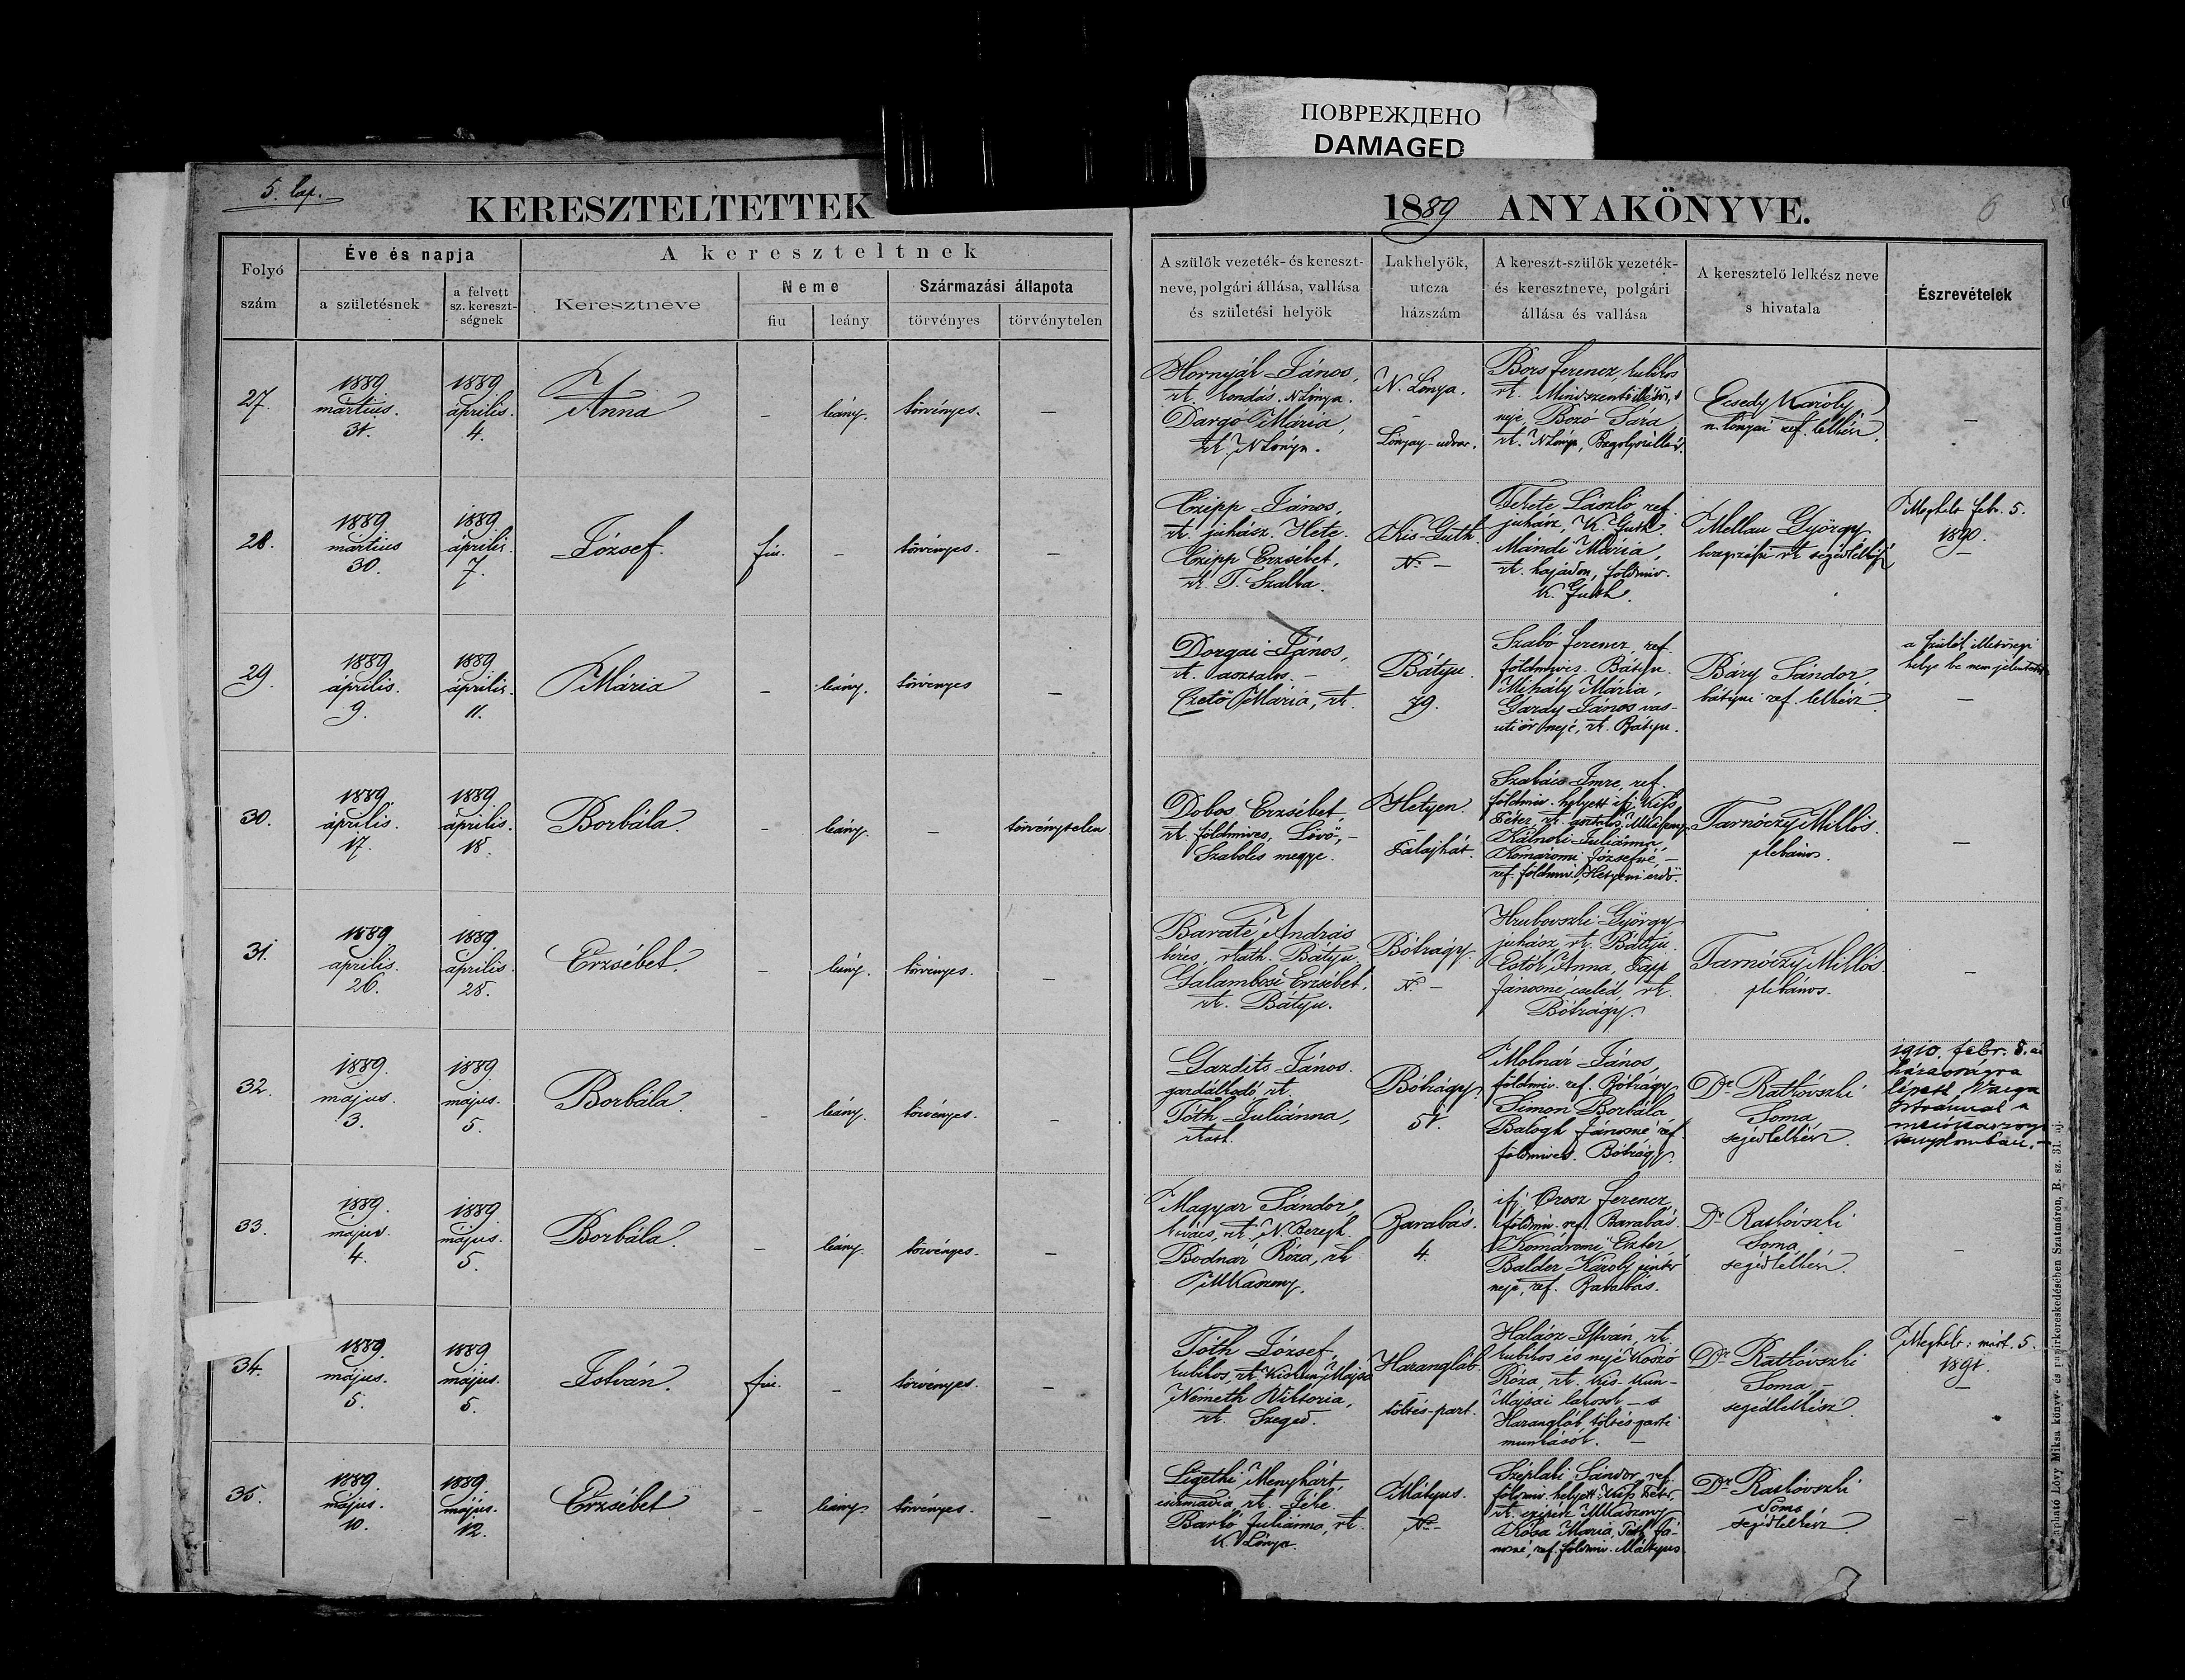 ПОВРЕЖДЕНО
DAMAGED
5. lap.
KERESZTELTETTEK
1889 ANYAKÖNYVE.
6
Folyó szám
Éve és napja
a születésnek
a felvett sz. kereszt-ségnek
A kereszteltnek
Keresztneve
Neme
fiu
leány
Származási állapota
törvényes
törvénytelen
A szülők vezeték- és kereszt-
neve, polgári állása, vallása
és születési helyök
Lakhelyök,
utcza
házszám
A kereszt-szülők vezeték-
és keresztneve, polgári
állása és vallása
A keresztelő lelkész neve
s hivatala
Észrevételek
27.
1889
mártius.
31.
1889
április.
4.
Anna
–
leány.
törvényes.
–
Hornyák János,
rk. kondás. N.Lónya.
Dargó Mária,
rk. N.Lónya.
N. Lónya.
–
Lónyay-udvar.
Bors Ferencz, kubikos
rk. Mindszenti
neje, Bozó Sára,
rk. N.Lónya,
Ecsedy Károly
n. lónyai ref. lelkész.
–
28.
1889
mártius
30.
1889
április.
7.
József.
fiu.
–
törvényes.
–
Czipp János,
rk. juhász. Hete.
Czipp Erzsébet,
rk. T. Szalka.
Kis-Guth.
N. –
Fekete László ref.
juhász, K. Guth.
Mándi Mária,
rk. hajadon, földmiv.
K. Guth.
Mellau György
beregszászi rk segédlelkész
Meghalt febr. 5.
1890.
29.
1889
április.
9.
1889
április.
11.
Mária
–
leány.
törvényes
–
Dorgai János,
rk. asztalos. –
Czető Mária, rk.
Bátyu.
79.
Szabó Ferencz, ref.
földmives. Bátyu.
Mihály Mária,
Garay János vas-
uti őr neje, rk. Bátyu.
Báry Sándor
bátyui ref. lelkész.
a szülők illetőségi
helye be nem jelentetett
–
30.
1889.
április.
17.
1889
április.
18.
Borbála.
–
leány.
–
törvénytelen
Dobos Erzsébet,
rk. földmives, Lövő, –
Szabolcs megye.
Hetyen.
–
Falajhát.
Szakács Imre, ref.
földmiv. helyett ifj. Kiss
Péter, rk. asztalos, M.Kaszony
Kálnoki Juliánna,
Komáromi Józsefné, –
ref. földmiv. Hetyeni erdő.
Tarnóczy Miklós.
plébános.
–
31.
1889
április.
26.
1889.
április.
28.
Erzsébet.
–
leány.
törvényes.
–
András
béres, rkath. Bátyu.
Galambosi Erzsébet,
rk. Bátyu.
Bótrágy.
N. –
Hrubovszki György
juhász, rk. Bátyu.
Anna, Papp
Jánosné cseléd, rk.
Bótrágy.
Tarnóczy Miklós.
plébános.
–
32.
1889.
május.
3.
1889.
május.
5.
Borbála.
–
leány.
törvényes.
–
Gazdits János.
gazdálkodó, rk.
Tóth Juliánna,
rkath.
Bótrágy
51.
Molnár János,
földmiv. ref. Bótrágy
Simon Borbála,
Balogh Jánosné ref.
földmives. Bótrágy.
Dr. Ratkóvszki
Soma
segédlelkész.
1910. febr. 8.-án
házasságra
lépett Varga
Istvánnal a
mezőkaszonyi
templomban. –
33.
1889.
május.
4.
1889
május.
5.
Borbála.
–
leány.
törvényes.
–
Magyar Sándor,
kovács, rk. N. Beregh.
Bodnár Róza, rk
M.Kaszony.
Barabás.
4.
ifj. Orosz Ferencz
földmiv. ref. Barabás.
Komáromi Eszter
Balder Károly pintér
neje, ref. Barabás.
Dr. Ratkóvszki
Soma
segédlelkész.
–
34.
1889.
május.
5.
1889
május.
5.
István.
fiu.
–
törvényes.
–
Tóth József,
kubikos, rk. Kiskun-Majsa
Németh Viktoria,
rk. Szeged.
Harangláb
–
töltés-part.
Halász István, rk.
kubikos és neje Koszó
Róza rk. Kis-Kun-
Majsai lakosok – s
Harangláb töltés-parti
munkások. –
Dr. Ratkóvszki
Soma –
segédlelkész.
Meghalt: márt. 5.
1891
–
35.
1889.
május.
10.
1889.
május.
12.
Erzsébet
–
leány.
törvényes.
–
Ligethi Menyhárt
csizmadia, rk. Jéke.
Bartó Juliánna, rk.
K. Lónya.
Mátyus.
N. –
Széplaki Sándor, ref.
földmiv. helyett: Kiss Péter,
rk. M.Kaszony
Kósa Mária, Tóth Já-
nosné, ref. földmiv. Mátyus
Dr. Ratkóvszki
Soma
segédlelkész
–
Kapható Lővy Miksa könyv- és papirkereskedésében Szatmáron, R. sz. 31. uj.